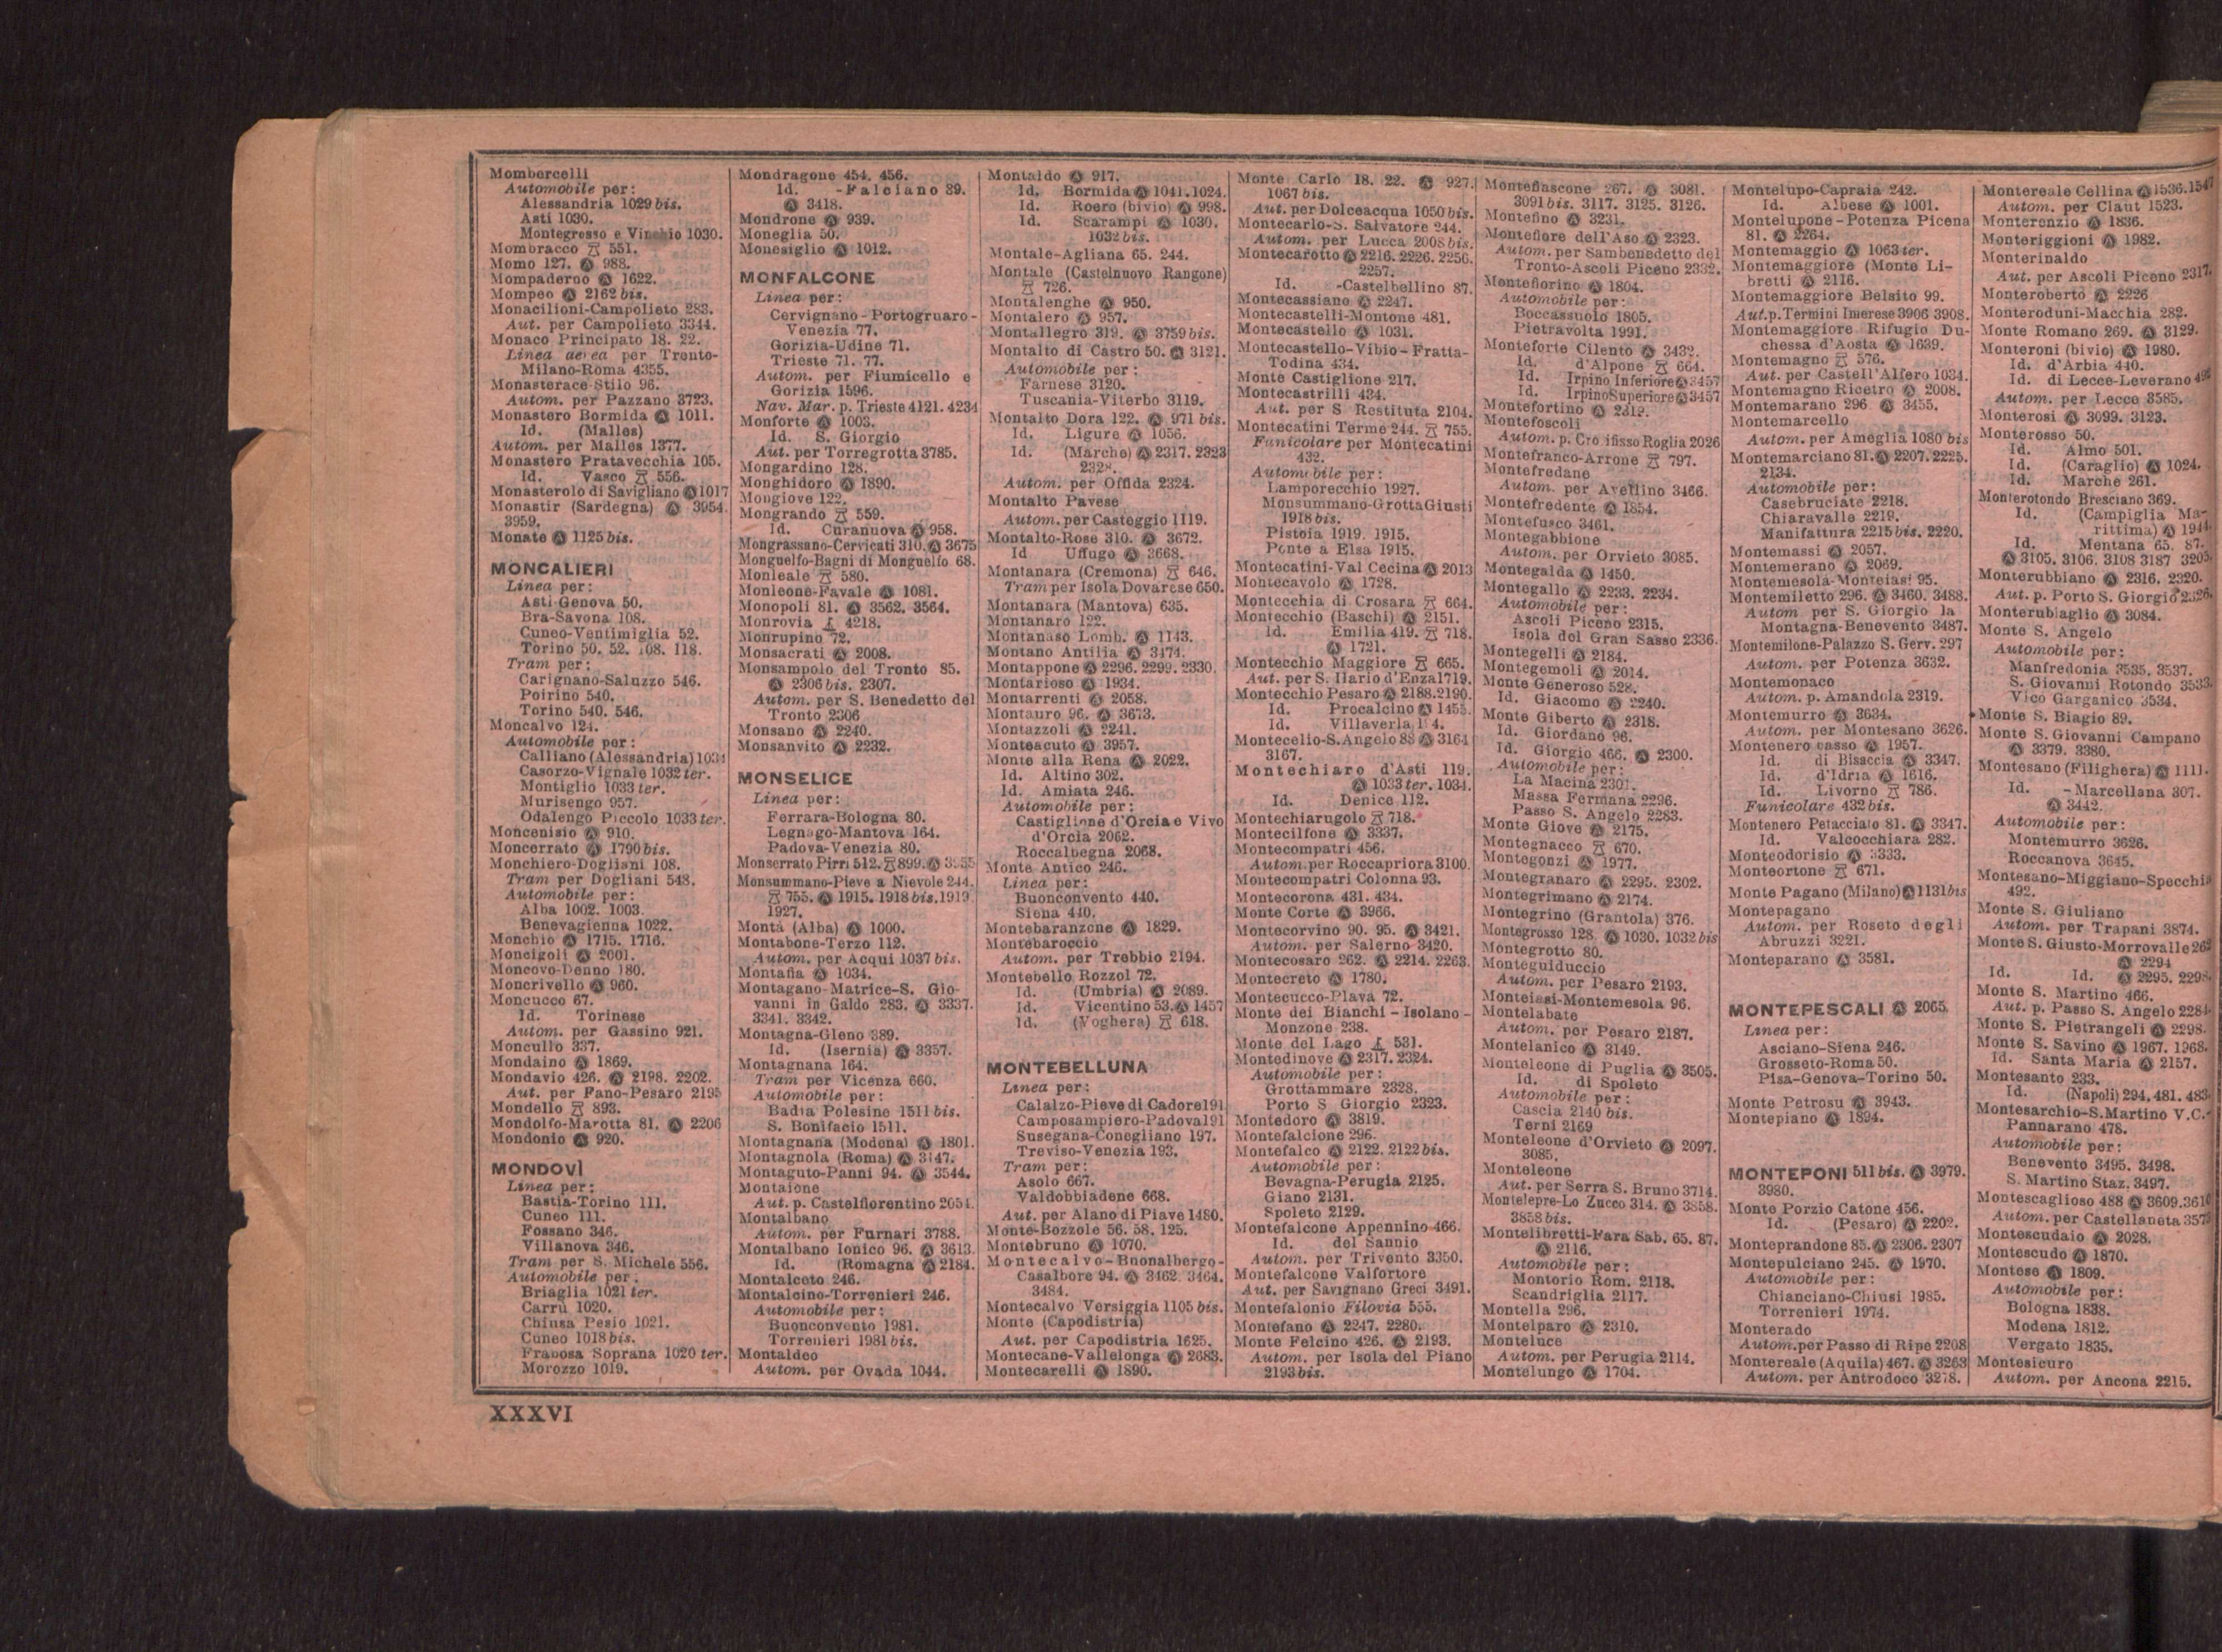 Mombercelli
Automobile per:
Alessandria 1029 bis.
Asti 1030.
Montegrosso e Vinchio 1030.
Mombracco 551.
Momo 127. Ⓐ 988.
Mompaderno Ⓐ 1622.
Mompeo Ⓐ 2162 bis.
Monacilioni-Campolieto 283.
Aut. per Campolieto 3344.
Monaco Principato 18. 22.
Linea aerea per Trento-
Milano-Roma 4355.
Monasterace Stilo 96.
Autom. per Pazzano 3723.
Monastero Bormida Ⓐ 1011.
Id. (Malles)
Autom. per Malles 1377.
Monastero Pratavecchia 105.
Id. Vasco 556.
Monasterolo di Savigliano Ⓐ 1017
Monastir (Sardegna) Ⓐ 3954.
3959.
Monate Ⓐ 1125 bis.
MONCALIERI
Linea per:
Asti-Genova 50.
Bra-Savona 108.
Cuneo-Ventimiglia 52.
Torino 50. 52. 108. 118.
Tram per:
Carignano-Saluzzo 546.
Poirino 540.
Torino 540. 546.
Moncalvo 124.
Automobile per:
Calliano (Alessandria) 1034
Casorzo-Vignale 1032 ter.
Montiglio 1033 ter.
Murisengo 957.
Odalengo Piccolo 1033 ter.
Moncenisio Ⓐ 910.
Moncerrato Ⓐ 1790 bis.
Monchiero-Dogliani 108.
Tram per Dogliani 548.
Automobile per:
Alba 1002. 1003.
Benevagienna 1022.
Monchio Ⓐ 1715. 1716.
Moncigoli Ⓐ 2001.
Moncovo-Denno 180.
Moncrivello Ⓐ 960.
Moncucco 67.
Id. Torinese
Autom. per Gassino 921.
Moncullo 337.
Mondaino Ⓐ 1869.
Mondavio 426. Ⓐ 2198. 2202.
Aut. per Fano-Pesaro 2195
Mondello 893.
Mondolfo-Marotta 81. Ⓐ 2206
Mondonio Ⓐ 920.
MONDOVÌ
Linea per:
Bastia-Torino 111.
Cuneo 111.
Fossano 346.
Villanova 346.
Tram per S. Michele 556.
Automobile per:
Briaglia 1021 ter.
Carrù 1020.
Chiusa Pesio 1021.
Cuneo 1018 bis.
Frabosa Soprana 1020 ter.
Morozzo 1019.
Mondragone 454. 456.
Id. -Falciano 89.
Ⓐ 3418.
Mondrone Ⓐ 939.
Moneglia 50.
Monesiglio Ⓐ 1012.
MONFALCONE
Linea per:
Cervignano-Portogruaro-
Venezia 77.
Gorizia-Udine 71.
Trieste 71. 77.
Autom. per Fiumicello e
Gorizia 1596.
Nav. Mar. p. Trieste 4121. 4234
Monforte Ⓐ 1003.
Id. S. Giorgio
Aut. per Torregrotta 3785.
Mongardino 128.
Monghidoro Ⓐ 1890.
Mongiove 122.
Mongrando 559.
Id. Curanuova Ⓐ 958.
Mongrassano-Cervicati 310. Ⓐ 3675
Monguelfo-Bagni di Monguelfo 68.
Monleale 580.
Monleone-Favale Ⓐ 1081.
Monopoli 81. Ⓐ 3562. 3564.
Monrovia 4218.
Monrupino 72.
Monsacrati Ⓐ 2008.
Monsampolo del Tronto 85.
Ⓐ 2306 bis. 2307.
Autom. per S. Benedetto del
Tronto 2306
Monsano Ⓐ 2240.
Monsanvito Ⓐ 2232.
MONSELICE
Linea per:
Ferrara-Bologna 80.
Legnago-Mantova 164.
Padova-Venezia 80.
Monserrato Pirri 512. 899. Ⓐ
Monsummano-Pieve a Nievole 244.
755. Ⓐ 1915. 1918 bis. 1919.
1927.
Montà (Alba) Ⓐ 1000.
Montabone-Terzo 112.
Autom. per Acqui 1037 bis.
Montafia Ⓐ 1034.
Montagano-Matrice-S. Gio-
vanni in Galdo 283. Ⓐ 3337.
3341. 3342.
Montagna-Gleno 389.
Id. (Isernia) Ⓐ 3357.
Montagnana 164.
Tram per Vicenza 660.
Automobile per:
Badia Polesine 1511 bis.
S. Bonifacio 1511.
Montagnana (Modena) Ⓐ 1801.
Montagnola (Roma) Ⓐ 3147.
Montaguto-Panni 94. Ⓐ 3544.
Montaione
Aut. p. Castelfiorentino 2051.
Montalbano
Autom. per Furnari 3788.
Montalbano Ionico 96. Ⓐ 3613.
Id. (Romagna Ⓐ 2184.
Montalceto 246.
Montalcino-Torrenieri 246.
Automobile per:
Buonconvento 1981.
Torrenieri 1981 bis.
Montaldeo
Autom. per Ovada 1044.
Montaldo Ⓐ 917.
Id. Bormida Ⓐ 1041. 1024.
Id. Roero (bivio) Ⓐ 998.
Id. Scarampi Ⓐ 1030.
1032 bis.
Montale-Agliana 65. 244.
Montale (Castelnuovo Rangone)
726.
Montalenghe Ⓐ 950.
Montalero Ⓐ 957.
Montallegro 319. Ⓐ 3759 bis.
Montalto di Castro 50. Ⓐ 3121.
Automobile per:
Farnese 3120.
Tuscania-Viterbo 3119.
Montalto Dora 122. Ⓐ 971 bis.
Id. Ligure Ⓐ 1056.
Id. (Marche) Ⓐ 2317. 2323
2328.
Autom. per Offida 2324.
Montalto Pavese
Autom. per Casteggio 1119.
Montalto-Rose 310. Ⓐ 3672.
Id Uffugo Ⓐ 3668.
Montanara (Cremona) 646.
Tram per Isola Dovarese 650.
Montanara (Mantova) 635.
Montanaro 122.
Montanaso Lomb. Ⓐ 1143.
Montano Antilia Ⓐ 3474.
Montappone Ⓐ 2296. 2299. 2330.
Montarioso Ⓐ 1934.
Montarrenti Ⓐ 2058.
Montauro 96. Ⓐ 3673.
Montazzoli Ⓐ 2241.
Monteacuto Ⓐ 3957.
Monte alla Rena Ⓐ 2022.
Id. Altino 302.
Id. Amiata 246.
Automobile per:
Castiglione d'Orcia e Vivo
d'Orcia 2062.
Roccalbegna 2068.
Monte Antico 246.
Linea per:
Buonconvento 440.
Siena 440.
Montebaranzone Ⓐ 1829.
Montebaroccio
Autom. per Trebbio 2194.
Montebello Rozzol 72.
Id. (Umbria) Ⓐ 2089.
Id. Vicentino 53. Ⓐ 1457
Id. (Voghera) 618.
MONTEBELLUNA
Linea per:
Calalzo-Pieve di Cadore 191
Camposampiero-Padova 191
Susegana-Conegliano 197.
Treviso-Venezia 193.
Tram per:
Asolo 667.
Valdobbiadene 668.
Aut. per Alano di Piave 1480.
Monte-Bozzole 56. 58. 125.
Montebruno Ⓐ 1070.
Montecalvo-Buonalbergo-
Casalbore 94. Ⓐ 3462. 3464.
3484.
Montecalvo Versiggia 1105 bis.
Monte (Capodistria)
Aut. per Capodistria 1625.
Montecane-Vallelonga Ⓐ 2683.
Montecarelli Ⓐ 1890.
Monte Carlo 18. 22. Ⓐ 927.
1067 bis.
Aut. per Dolceacqua 1050 bis.
Montecarlo-S. Salvatore 244.
Autom. per Lucca 2008 bis.
Montecarotto Ⓐ 2216. 2226. 2256.
2257.
Id. -Castelbellino 87.
Montecassiano Ⓐ 2247.
Montecastelli-Montone 481.
Montecastello Ⓐ 1031.
Montecastello-Vibio-Fratta-
Todina 434.
Monte Castiglione 217.
Montecastrilli 434.
Aut. per S Restituta 2104.
Montecatini Terme 244. 755.
Funicolare per Montecatini
432.
Automobile per:
Lamporecchio 1927.
Monsummano-Grotta Giusti
1918 bis.
Pistoia 1919. 1915.
Ponte a Elsa 1915.
Montecatini-Val Cecina Ⓐ 2013
Montecavolo Ⓐ 1728.
Montecchia di Crosara 664.
Montecchio (Baschi) Ⓐ 2151.
Id. Emilia 419. 718.
Ⓐ 1721.
Montecchio Maggiore 665.
Aut. per S. Ilario d'Enza 1719.
Montecchio Pesaro Ⓐ 2188. 2190.
Id. Precalcino Ⓐ 1455.
Id. Villaverla
Montecelio-S. Angelo 88 Ⓐ 3164
3167.
Montechiaro d'Asti 119.
Ⓐ 1033 ter. 1034.
Id. Denice 112.
Montechiarugolo 718.
Montecilfone Ⓐ 3337.
Montecompatri 456.
Autom. per Roccapriora 3100.
Montecompatri Colonna 93.
Montecorona 431. 434.
Monte Corte Ⓐ 3966.
Montecorvino 90. 95. Ⓐ 3421.
Autom. per Salerno 3420.
Montecosaro 262. Ⓐ 2214. 2263.
Montecreto Ⓐ 1780.
Montecucco-Plava 72.
Monte dei Bianchi-Isolano-
Monzone 238.
Monte del Lago 531.
Montedinove Ⓐ 2317. 2324.
Automobile per:
Grottammare 2328.
Porto S Giorgio 2323.
Montedoro Ⓐ 3819.
Montefalcione 296.
Montefalco Ⓐ 2122. 2122 bis.
Automobile per:
Bevagna-Perugia 2125.
Giano 2131.
Spoleto 2129.
Montefalcone Appennino 466.
Id. del Sannio
Autom. per Trivento 3350.
Montefalcone Valfortore
Aut. per Savignano Greci 3491.
Montefalonio Filovia 555.
Montefano Ⓐ 2247. 2280.
Monte Felcino 426. Ⓐ 2193.
Autom. per Isola del Piano
2193 bis.
Montefiascone 267. Ⓐ 3081.
3091 bis. 3117. 3125. 3126.
Montefino Ⓐ 3231.
Montefiore dell'Aso Ⓐ 2323.
Autom. per Sambenedetto del
Tronto-Ascoli Piceno 2332.
Montefiorino Ⓐ 1804.
Automobile per:
Boccassuolo 1805.
Pietravolta 1991.
Monteforte Cilento Ⓐ 3432.
Id. d'Alpone 664.
Id. Irpino Inferiore Ⓐ 3457
Id. Irpino Superiore Ⓐ 3457
Montefortino Ⓐ 2319.
Montefoscoli
Autom. p. Crocifisso Roglia 2026
Montefranco-Arrone 797.
Montefredane
Autom. per Avellino 3466.
Montefredente Ⓐ 1854.
Montefusco 3461.
Montegabbione
Autom. per Orvieto 3085.
Montegalda Ⓐ 1450.
Montegallo Ⓐ 2233. 2234.
Automobile per:
Ascoli Piceno 2315.
Isola del Gran Sasso 2336.
Montegelli Ⓐ 2184.
Montegemoli Ⓐ 2014.
Monte Generoso 528.
Id. Giacomo Ⓐ 2240.
Monte Giberto Ⓐ 2318.
Id. Giordano 96.
Id. Giorgio 466. Ⓐ 2300.
Automobile per:
La Macina 2301.
Massa Fermana 2296.
Passo S. Angelo 2283.
Monte Giove Ⓐ 2175.
Montegnacco 670.
Montegonzi Ⓐ 1977.
Montegranaro Ⓐ 2295. 2302.
Montegrimano Ⓐ 2174.
Montegrino (Grantola) 376.
Montegrosso 128. Ⓐ 1030. 1032 bis
Montegrotto 80.
Monteguiduccio
Autom. per Pesaro 2193.
Monteiasi-Montemesola 96.
Montelabate
Autom. per Pesaro 2187.
Montelanico Ⓐ 3149.
Monteleone di Puglia Ⓐ 3505.
Id. di Spoleto
Automobile per:
Cascia 2140 bis.
Terni 2169
Monteleone d'Orvieto Ⓐ 2097.
3085.
Monteleone
Aut. per Serra S. Bruno 3714.
Montelepre-Lo Zucco 314. Ⓐ 3858.
3858 bis.
Montelibretti-Fara Sab. 65. 87.
Ⓐ 2116.
Automobile per:
Montorio Rom. 2118.
Scandriglia 2117.
Montella 296.
Montelparo Ⓐ 2310.
Monteluce
Autom. per Perugia 2114.
Montelungo Ⓐ 1704.
Montelupo-Capraia 242.
Id. Albese Ⓐ 1001.
Montelupone-Potenza Picena
81. Ⓐ 2264.
Montemaggio Ⓐ 1063 ter.
Montemaggiore (Monte Li-
bretti Ⓐ 2116.
Montemaggiore Belsito 99.
Aut. p. Termini Imerese 3906 3908.
Montemaggiore Rifugio Du-
chessa d'Aosta Ⓐ 1639.
Montemagno 576.
Aut. per Castell'Alfero 1034.
Montemagno Ricetro Ⓐ 2008.
Montemarano 296 Ⓐ 3455.
Montemarcello
Autom. per Ameglia 1080 bis
Montemarciano 81. Ⓐ 2207. 2225.
2134.
Automobile per:
Casebruciate 2218.
Chiaravalle 2219.
Manifattura 2215 bis. 2220.
Montemassi Ⓐ 2057.
Montemerano Ⓐ 2069.
Montemesola-Monteiasi 95.
Montemiletto 296. Ⓐ 3460. 3488.
Autom per S. Giorgio la
Montagna-Benevento 3487.
Montemilone-Palazzo S. Gerv. 297
Autom. per Potenza 3632.
Montemonaco
Autom. p. Amandola 2319.
Montemurro Ⓐ 3634.
Autom. per Montesano 3626.
Montenero basso Ⓐ 1957.
Id. di Bisaccia Ⓐ 3347.
Id. d'Idria Ⓐ 1616.
Id. Livorno 786.
Funicolare 432 bis.
Montenero Petacciato 81. Ⓐ 3347.
Id. Valcocchiara 282.
Monteodorisio Ⓐ 3333.
Monteortone 671.
Monte Pagano (Milano) Ⓐ 1131 bis
Montepagano
Autom. per Roseto degli
Abruzzi 3221.
Monteparano Ⓐ 3581.
MONTEPESCALI Ⓐ 2065.
Linea per:
Asciano-Siena 246.
Grosseto-Roma 50.
Pisa-Genova-Torino 50.
Monte Petrosu Ⓐ 3943.
Montepiano Ⓐ 1894.
MONTEPONI 511 bis. Ⓐ 3979.
3980.
Monte Porzio Catone 456.
Id. (Pesaro) Ⓐ 2202.
Monteprandone 85. Ⓐ 2306. 2307
Montepulciano 245. Ⓐ 1970.
Automobile per:
Chianciano-Chiusi 1985.
Torrenieri 1974.
Monterado
Autom. per Passo di Ripe 2208
Montereale (Aquila) 467. Ⓐ 3263
Autom. per Antrodoco 3278.
Montereale Cellina Ⓐ 1536. 1547
Autom. per Claut 1523.
Monterenzio Ⓐ 1836.
Monteriggioni Ⓐ 1982.
Monterinaldo
Aut. per Ascoli Piceno 2317.
Monteroberto Ⓐ 2226
Monteroduni-Macchia 282.
Monte Romano 269. Ⓐ 3129.
Monteroni (bivio) Ⓐ 1980.
Id. d'Arbia 440.
Id. di Lecce-Leverano
Autom. per Lecce 3585.
Monterosi Ⓐ 3099. 3123.
Monterosso 50.
Id. Almo 501.
Id. (Caraglio) Ⓐ 1024.
Id. Marche 261.
Monterotondo Bresciano 369.
Id. (Campiglia Ma-
rittima) Ⓐ 1944.
Id. Mentana 65. 87.
Ⓐ 3105. 3106. 3108 3187 3205.
Monterubbiano Ⓐ 2316. 2320.
Aut. p. Porto S. Giorgio 2326.
Monterubiaglio Ⓐ 3084.
Monte S. Angelo
Automobile per:
Manfredonia 3535. 3537.
S. Giovanni Rotondo 3533.
Vico Garganico 3534.
Monte S. Biagio 89.
Monte S. Giovanni Campano
Ⓐ 3379. 3380.
Montesano (Filighera) Ⓐ 1111.
Id. -Marcellana 307.
Ⓐ 3442.
Automobile per:
Montemurro 3626.
Roccanova 3645.
Montesano-Miggiano-Specchia
492.
Monte S. Giuliano
Autom. per Trapani 3874.
Monte S. Giusto-Morrovalle 262
Ⓐ 2294
Id. Id. Ⓐ 2295. 2298.
Monte S. Martino 466.
Aut. p. Passo S. Angelo 2284.
Monte S. Pietrangeli Ⓐ 2298.
Monte S. Savino Ⓐ 1967. 1968.
Id. Santa Maria Ⓐ 2157.
Montesanto 233.
Id. (Napoli) 294. 481. 483.
Montesarchio-S. Martino V.C.-
Pannarano 478.
Automobile per:
Benevento 3495. 3498.
S. Martino Staz. 3497.
Montescaglioso 488 Ⓐ 3609. 3610
Autom. per Castellaneta
Montescudaio Ⓐ 2028.
Montescudo Ⓐ 1870.
Montese Ⓐ 1809.
Automobile per:
Bologna 1838.
Modena 1812.
Vergato 1835.
Montesicuro
Autom. per Ancona 2215.
XXXVI